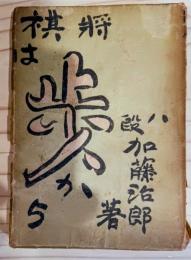 将棋は
歩から
八段 加藤治郎著